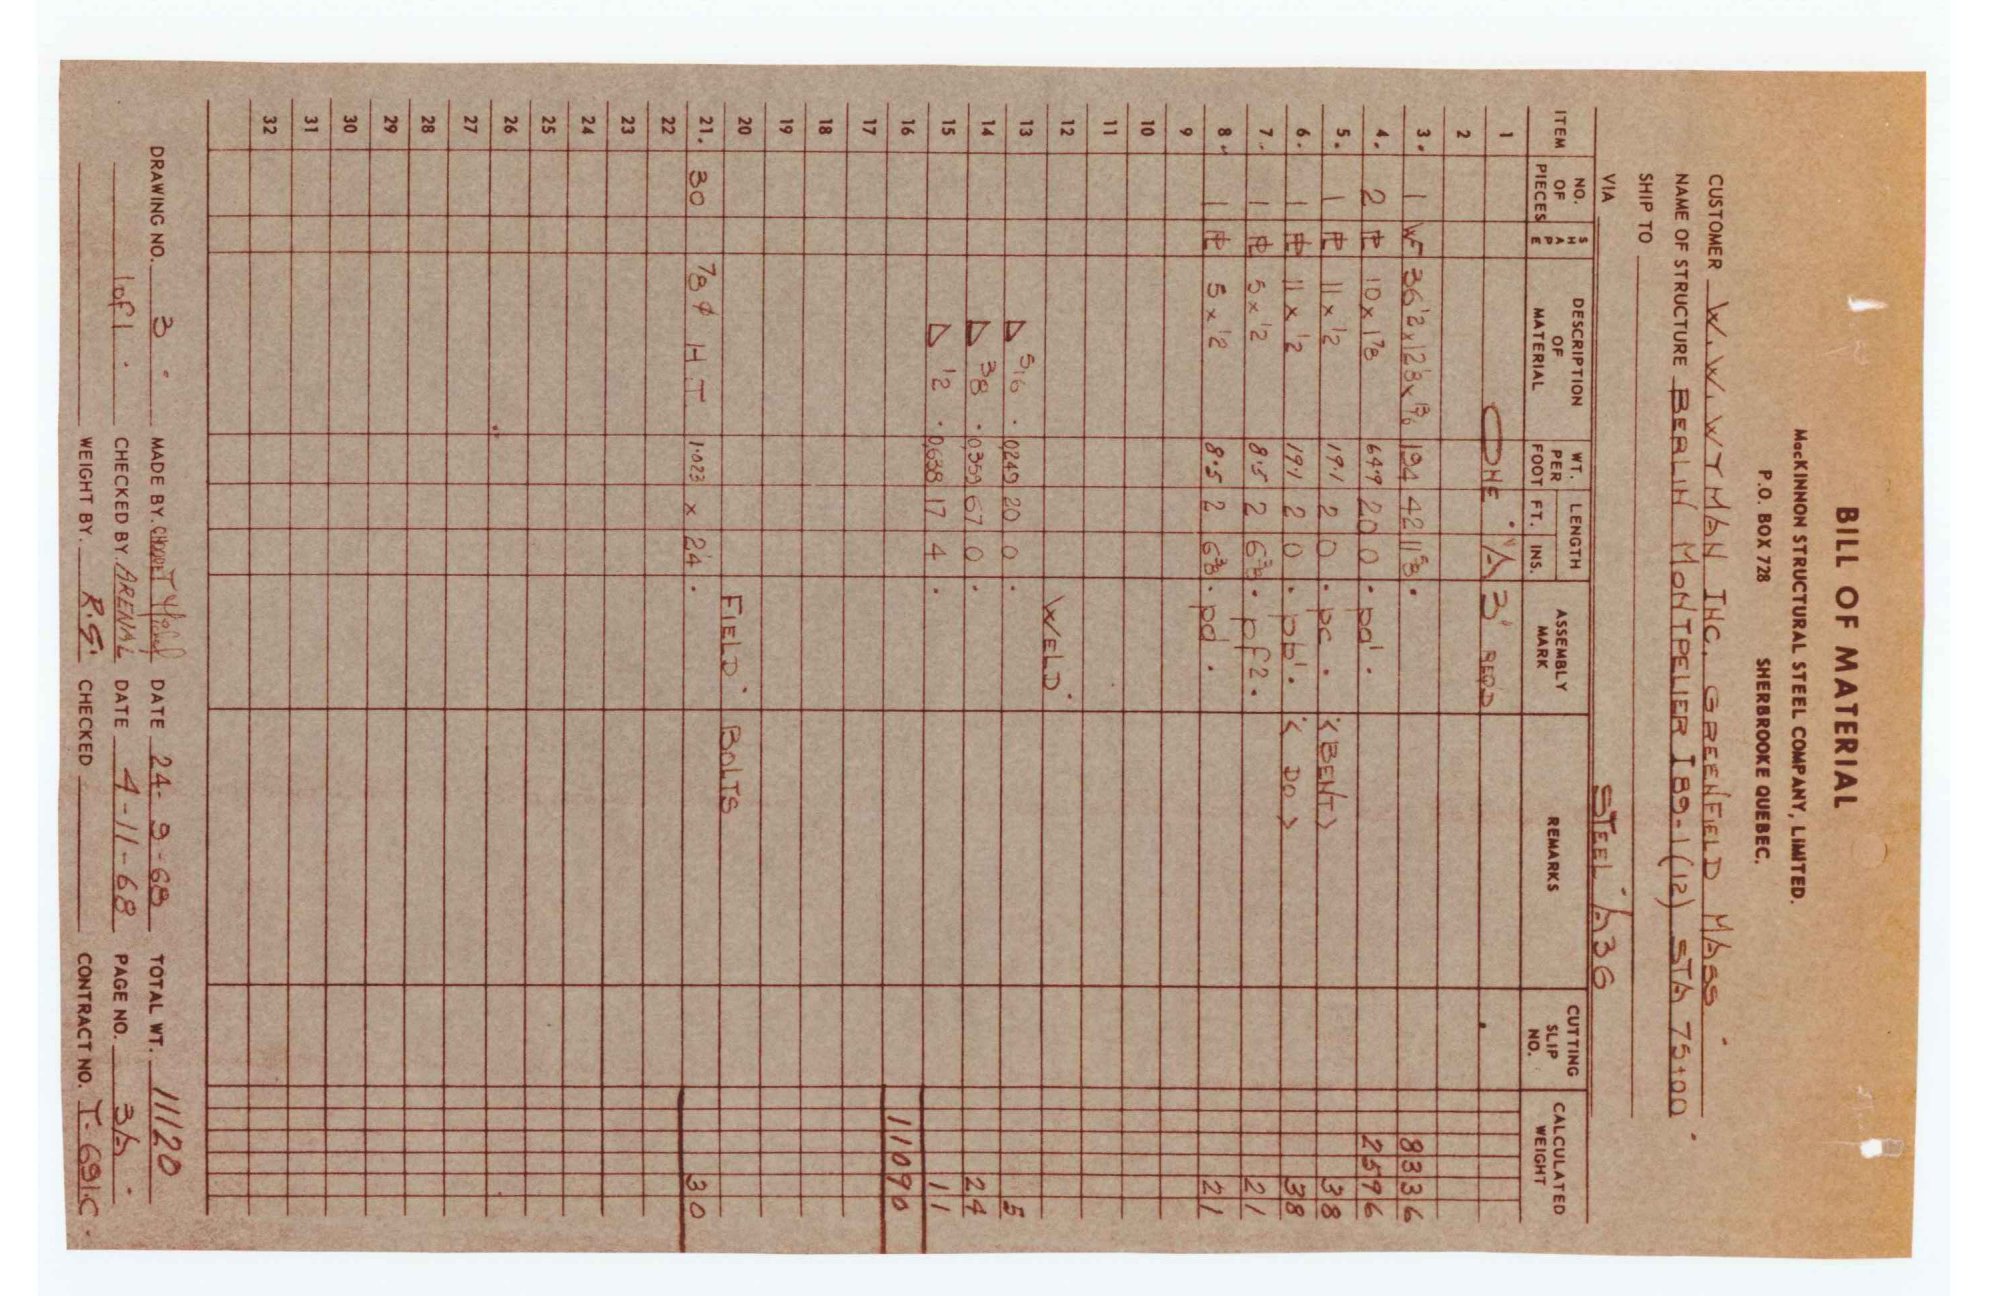 BILL OF MATERIAL
MacKINNON STRUCTURAL STEEL COMPANY, LIMITED.
P.O. BOX 728 SHERBROOKE QUEBEC.
CUSTOMER W. W. WYMAN INC. GREENFIELD MASS.
NAME OF STRUCTURE BERLIN MONTPELIER I 89-1(12) STA 75+00
SHIP TO
VIA STEEL A36
ITEM NO. OF PIECES SHAPE DESCRIPTION OF MATERIAL WT. PER FOOT LENGTH FT. INS. ASSEMBLY MARK REMARKS CUTTING SLIP NO. CALCULATED WEIGHT
1 ONE "A3" REQD
2
3. 1 WF 36 1/2 x 12 1/8 x 13/16 194 42 11 5/8. 8336
4. 2 PL 10 x 1 7/8 64.9 20 0. pa'. 2596
5. 1 PL 11 x 1/2 19.1 2 0. pc. <BENT> 38
6. 1 PL 11 x 1/2 19.1 2 0. pb'. < DO > 38
7. 1 PL 5 x 1/2 8.5 2 6 3/8. pf2. 21
8. 1 PL 5 x 1/2 8.5 2 6 3/8. pd. 21
9
10
11
12 WELD.
13 5/16. 0249 20 0. 5
14 3/8. 0,359 67 0. 24
15 1/2. 0,638 17 4. 11
16 11090
17
18
19
20 FIELD. BOLTS
21. 30 7/8 φ H.T. 1.023 x 24. 30
22
23
24
25
26
27
28
29
30
31
32
DRAWING NO. 3. MADE BY. DATE 24-9-68 TOTAL WT. 11120
1 of 1. CHECKED BY. ARENAL DATE 4-11-68 PAGE NO. 3A.
WEIGHT BY. R.S. CHECKED CONTRACT NO. T-691C.